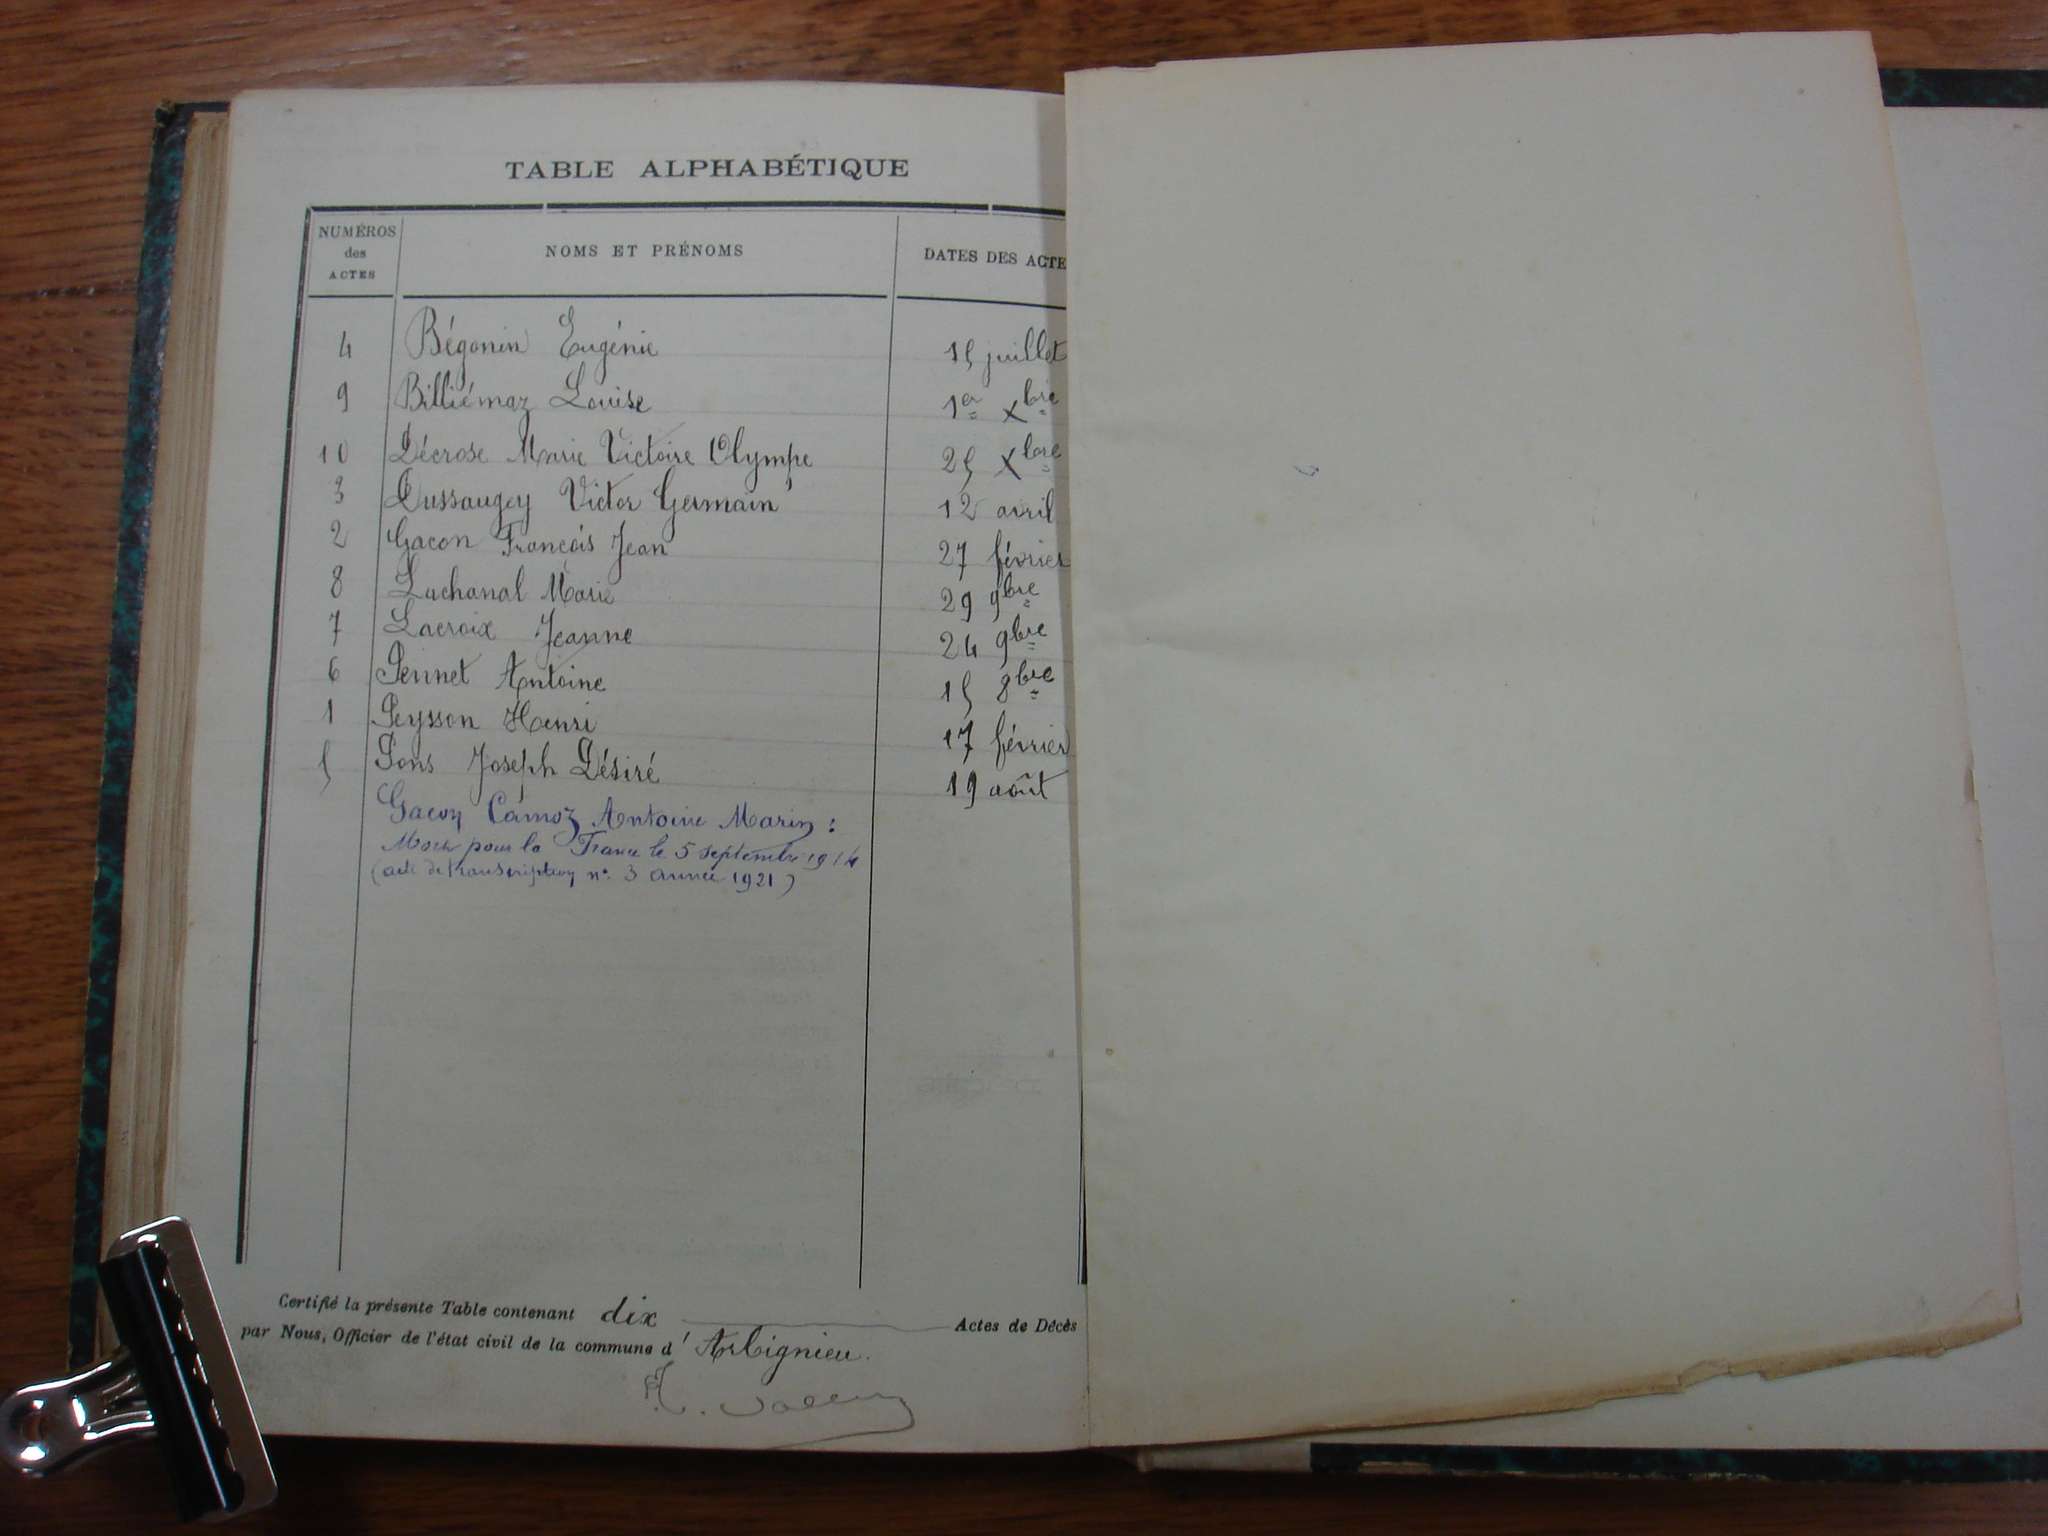 TABLE ALPHABÉTIQUE
NUMÉROS des ACTES NOMS ET PRÉNOMS DATES DES ACTE
4 Bégonin Eugénie 15 juillet
9 Billiémaz Louise 1er Xbre
10 Décrose Marie Victoire Olympe 25 Xbre
3 Dussaugey Victor Germain 12 avril
2 Gacon François Jean 27 février
8 Lachanal Marie 29 9bre
7 Lacroix Jeanne 24 9bre
6 Pennet Antoine 15 8bre
1 Peysson Henri 17 février
5 Pons Joseph Désiré 19 août
Gacon Camoz Antoine Marin :
Mort pour la France le 5 septembre 1914
(acte de transcription n° 3 année 1921)
Certifié la présente Table contenant dix Actes de Décès
par Nous, Officier de l'état civil de la commune d' Arbignieu.